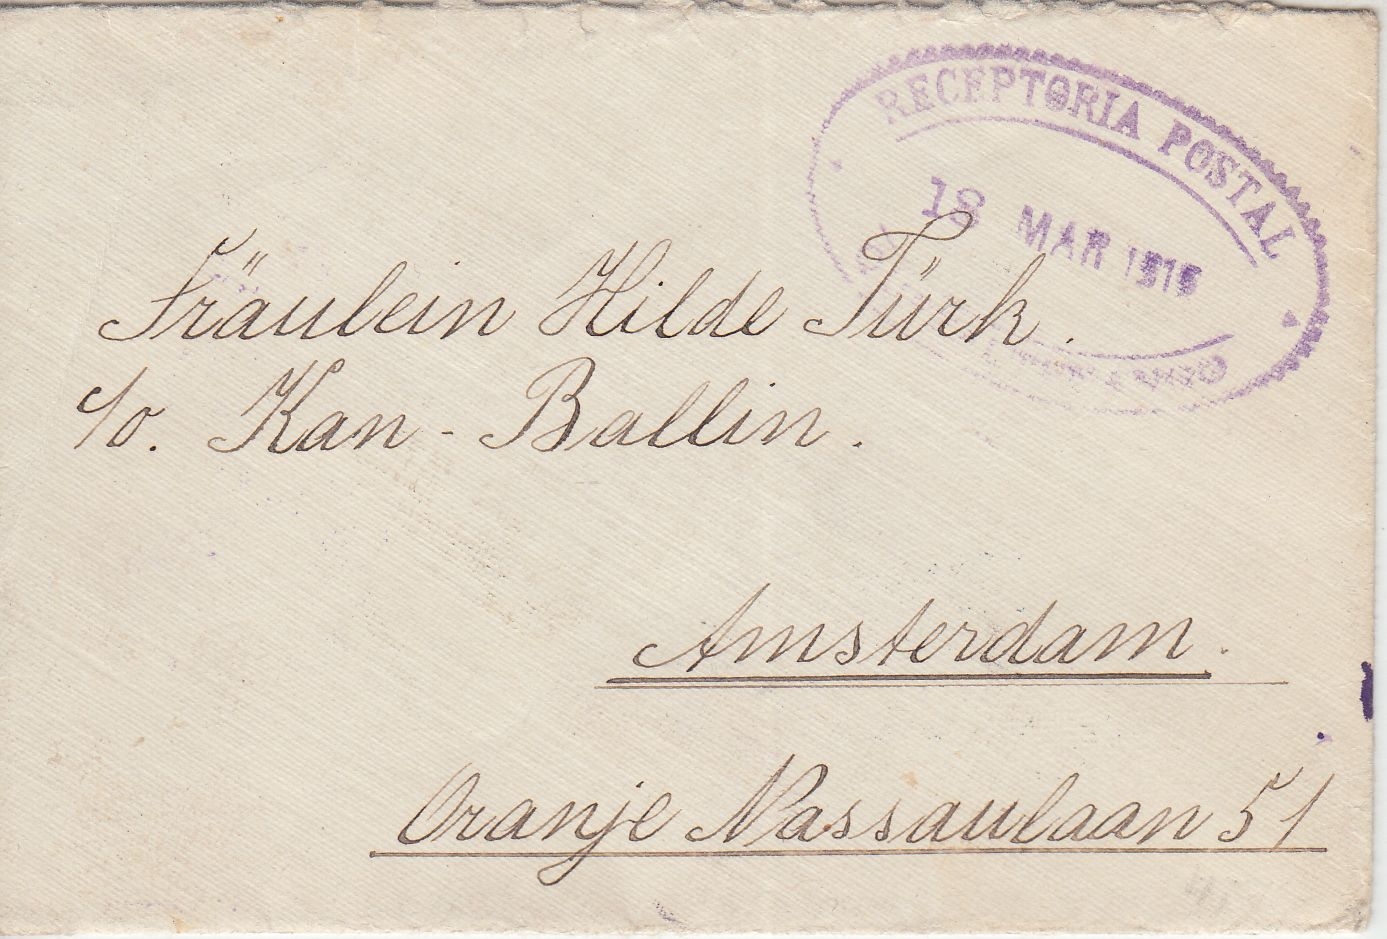 RECEPTORIA POSTAL
18 MAR 1915
Fräulein Hilde Türk.
c/o. Kan - Ballin.
Amsterdam.
Oranje Nassaulaan 51